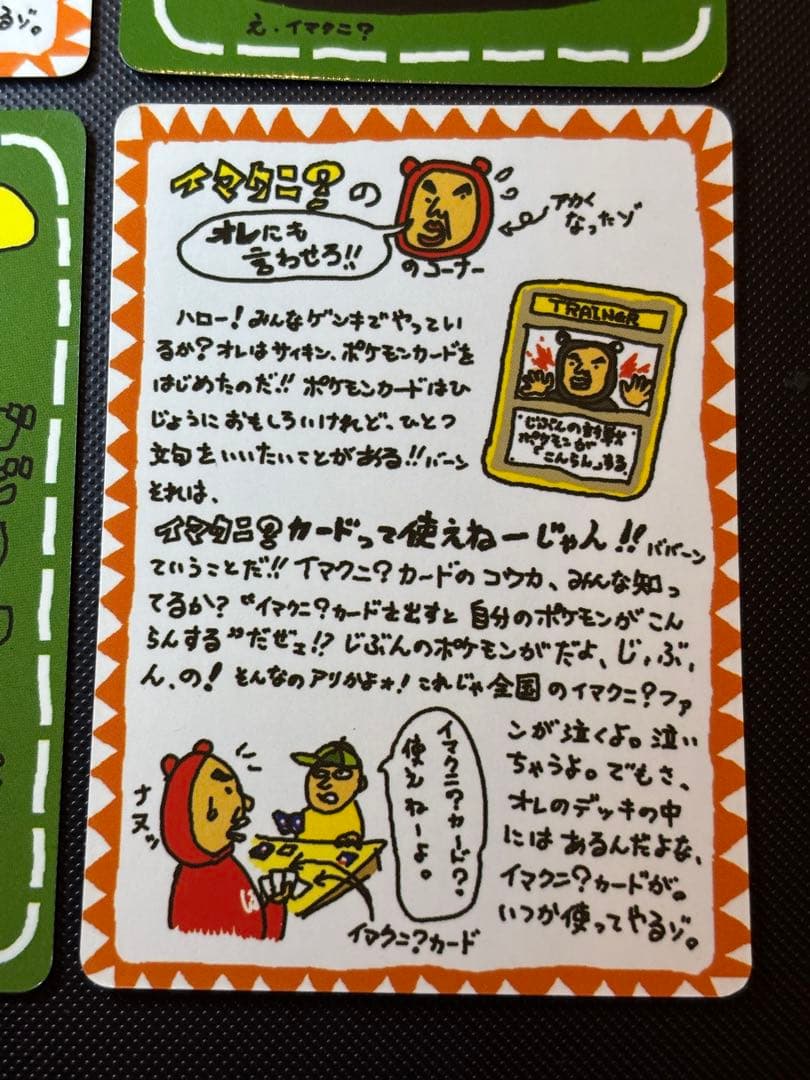 るゾ。
え・イマクニ?
イマクニ?の
オレにも
言わせろ!!
のコーナー
アカく
なったゾ
TRAINER
じぶんの対戦
ポケモンが
「こんらん」する。
ハロー!みんなゲンキでやってい
るか?オレはサイキン、ポケモンカードを
はじめたのだ!!ポケモンカードはひ
じょうにおもしろいけれど、ひとつ
文句をいいたいことがある!!バーン
それは、
イマクニ?カードって使えねーじゃん!!ババーン
ていうことだ!!イマクニ?カードのコウカ、みんな知っ
てるか?“イマクニ?カードを出すと自分のポケモンがこん
らんする”だぜェ!?じぶんのポケモンがだよ、じ,ぶ,
ん,の!そんなのアリかよォ!これじゃ全国のイマクニ?ファ
ンが泣くよ。泣い
ちゃうよ。でもさ、
オレのデッキの中
にはあるんだよな、
イマクニ?カードが。
いつか使ってやるゾ。
ナヌッ
イマクニ?カード?
使えねーよ。
イマクニ?カード